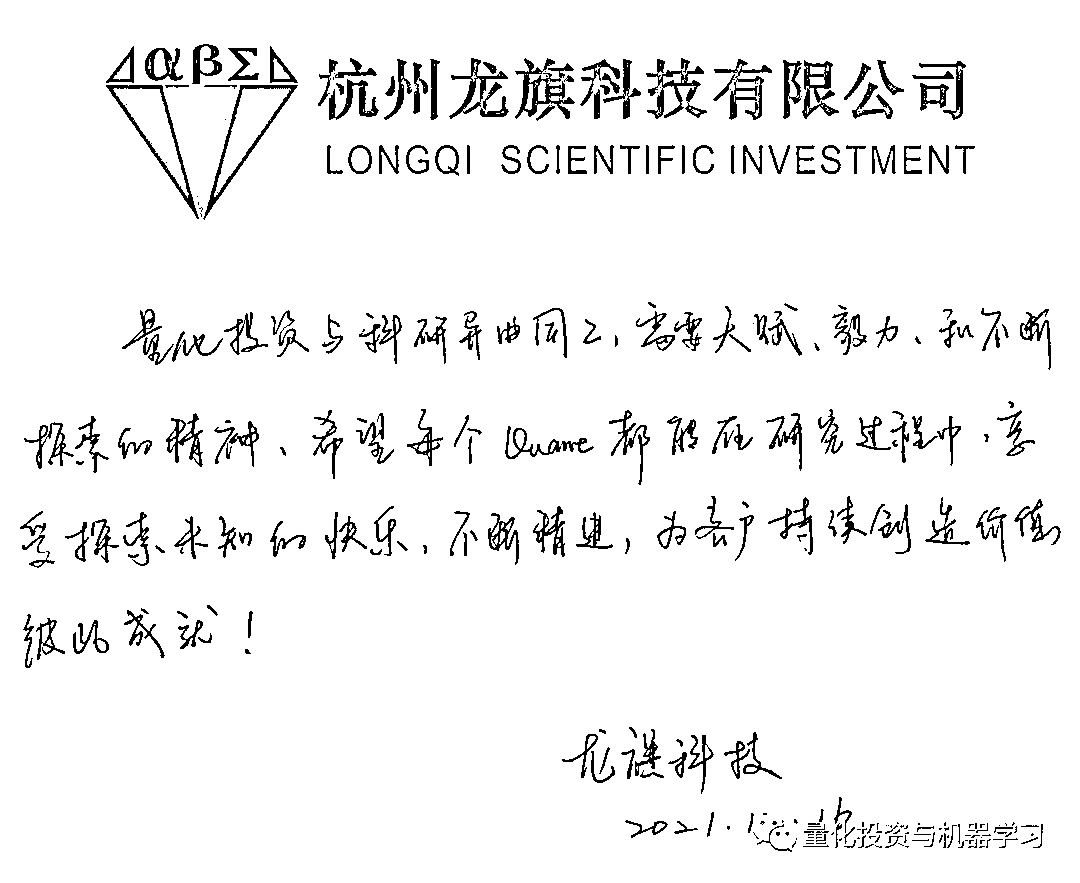 αβΣ
杭州龙旗科技有限公司
LONGQI SCIENTIFIC INVESTMENT
量化投资与科研异曲同工,需要天赋、毅力、和不断
探索的精神、希望每个Quant都能在研究过程中,享
受探索未知的快乐,不断精进,为客户持续创造价值,
彼此成就!
龙旗科技
2021.1
量化投资与机器学习